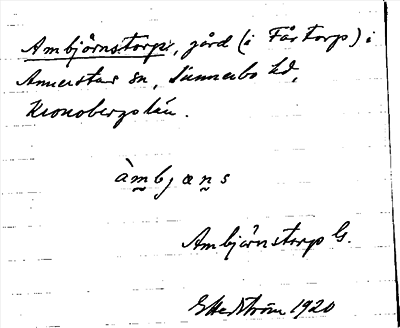 Ambjörnstorp, gård (i Fårtorp) i
Annerstas sn, Sunnerbo hd,
Kronobergs län.
àmbjæns
Ambjörnstorp G.
1920